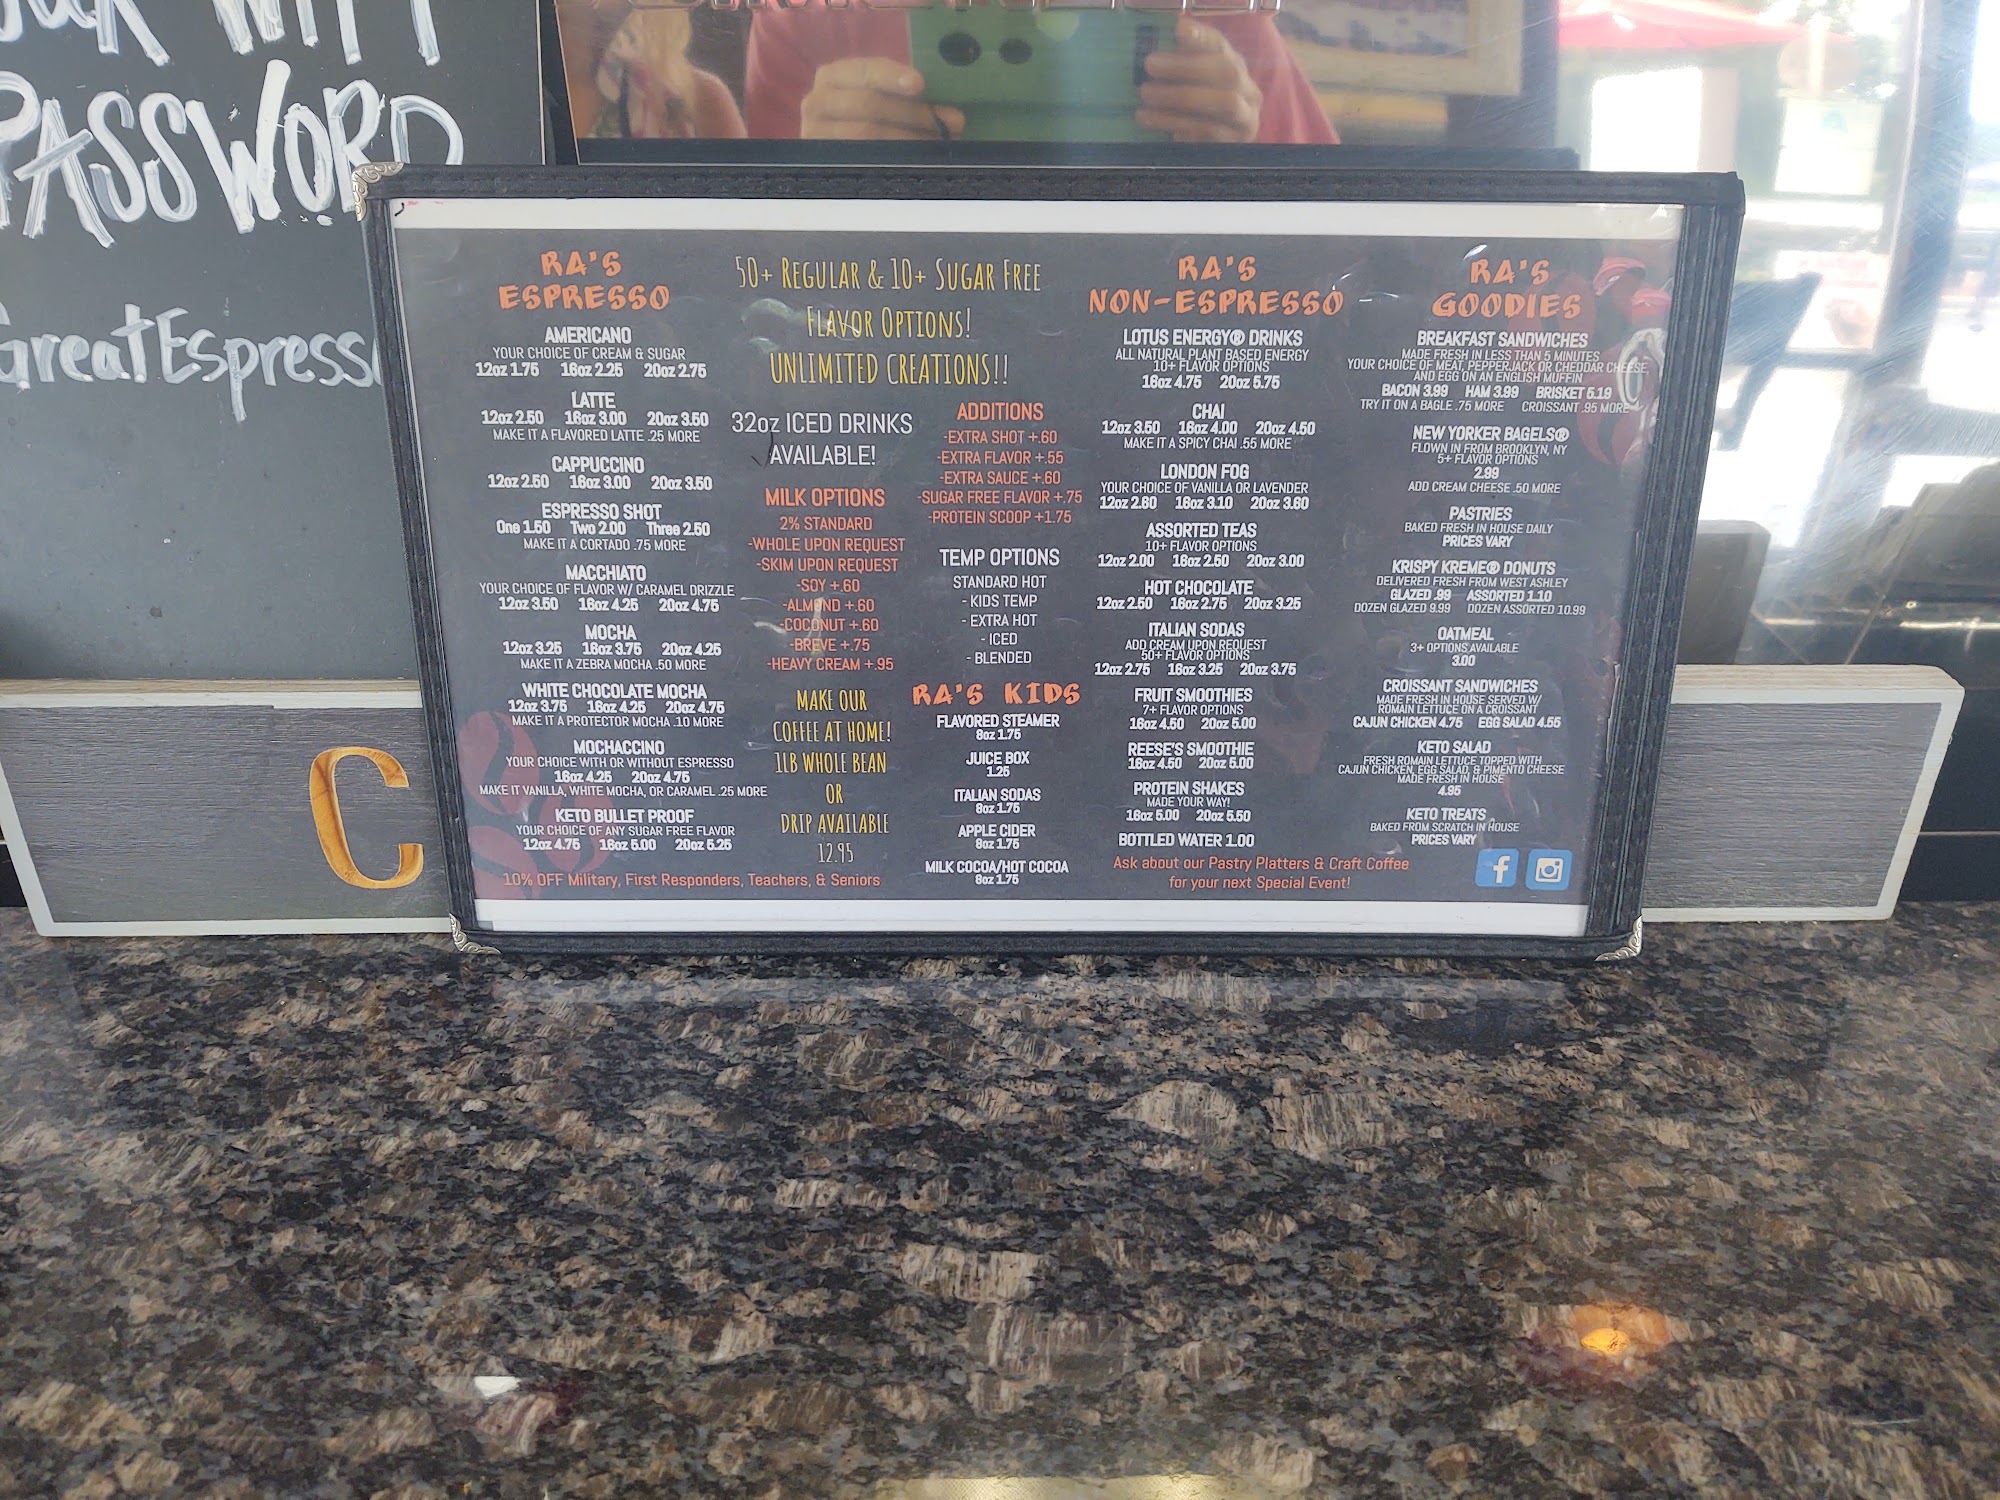 PASSWORD
GreatEspresso
C
RA'S
ESPRESSO
AMERICANO
YOUR CHOICE OF CREAM & SUGAR
12oz 1.75 16oz 2.25 20oz 2.75
LATTE
12oz 2.50 16oz 3.00 20oz 3.50
MAKE IT A FLAVORED LATTE .25 MORE
CAPPUCCINO
12oz 2.50 16oz 3.00 20oz 3.50
ESPRESSO SHOT
One 1.50 Two 2.00 Three 2.50
MAKE IT A CORTADO .75 MORE
MACCHIATO
YOUR CHOICE OF FLAVOR W/ CARAMEL DRIZZLE
12oz 3.50 16oz 4.25 20oz 4.75
MOCHA
12oz 3.25 16oz 3.75 20oz 4.25
MAKE IT A ZEBRA MOCHA .50 MORE
WHITE CHOCOLATE MOCHA
12oz 3.75 16oz 4.25 20oz 4.75
MAKE IT A PROTECTOR MOCHA .10 MORE
MOCHACCINO
YOUR CHOICE WITH OR WITHOUT ESPRESSO
16oz 4.25 20oz 4.75
MAKE IT VANILLA, WHITE MOCHA, OR CARAMEL .25 MORE
KETO BULLET PROOF
YOUR CHOICE OF ANY SUGAR FREE FLAVOR
12oz 4.75 16oz 5.00 20oz 5.25
10% OFF Military, First Responders, Teachers, & Seniors
50+ REGULAR & 10+ SUGAR FREE
FLAVOR OPTIONS!
UNLIMITED CREATIONS!!
32oz ICED DRINKS
AVAILABLE!
MILK OPTIONS
2% STANDARD
-WHOLE UPON REQUEST
-SKIM UPON REQUEST
-SOY +.60
-ALMOND +.60
-COCONUT +.60
-BREVE +.75
-HEAVY CREAM +.95
MAKE OUR
COFFEE AT HOME!
1LB WHOLE BEAN
OR
DRIP AVAILABLE
12.95
ADDITIONS
-EXTRA SHOT +.60
-EXTRA FLAVOR +.55
-EXTRA SAUCE +.60
-SUGAR FREE FLAVOR +.75
-PROTEIN SCOOP +1.75
TEMP OPTIONS
STANDARD HOT
- KIDS TEMP
- EXTRA HOT
- ICED
- BLENDED
RA'S KIDS
FLAVORED STEAMER
8oz 1.75
JUICE BOX
1.25
ITALIAN SODAS
8oz 1.75
APPLE CIDER
8oz 1.75
MILK COCOA/HOT COCOA
8oz 1.75
RA'S
NON-ESPRESSO
LOTUS ENERGY® DRINKS
ALL NATURAL PLANT BASED ENERGY
10+ FLAVOR OPTIONS
16oz 4.75 20oz 5.75
CHAI
12oz 3.50 16oz 4.00 20oz 4.50
MAKE IT A SPICY CHAI .55 MORE
LONDON FOG
YOUR CHOICE OF VANILLA OR LAVENDER
12oz 2.60 16oz 3.10 20oz 3.60
ASSORTED TEAS
10+ FLAVOR OPTIONS
12oz 2.00 16oz 2.50 20oz 3.00
HOT CHOCOLATE
12oz 2.50 16oz 2.75 20oz 3.25
ITALIAN SODAS
ADD CREAM UPON REQUEST
50+ FLAVOR OPTIONS
12oz 2.75 16oz 3.25 20oz 3.75
FRUIT SMOOTHIES
7+ FLAVOR OPTIONS
16oz 4.50 20oz 5.00
REESE'S SMOOTHIE
16oz 4.50 20oz 5.00
PROTEIN SHAKES
MADE YOUR WAY!
16oz 5.00 20oz 5.50
BOTTLED WATER 1.00
Ask about our Pastry Platters & Craft Coffee
for your next Special Event!
RA'S
GOODIES
BREAKFAST SANDWICHES
MADE FRESH IN LESS THAN 5 MINUTES
YOUR CHOICE OF MEAT, PEPPERJACK OR CHEDDAR CHEESE,
AND EGG ON AN ENGLISH MUFFIN
BACON 3.99 HAM 3.99 BRISKET 5.19
TRY IT ON A BAGLE .75 MORE CROISSANT .95 MORE
NEW YORKER BAGELS®
FLOWN IN FROM BROOKLYN, NY
5+ FLAVOR OPTIONS
2.99
ADD CREAM CHEESE .50 MORE
PASTRIES
BAKED FRESH IN HOUSE DAILY
PRICES VARY
KRISPY KREME® DONUTS
DELIVERED FRESH FROM WEST ASHLEY
GLAZED .99 ASSORTED 1.10
DOZEN GLAZED 9.99 DOZEN ASSORTED 10.99
OATMEAL
3+ OPTIONS AVAILABLE
3.00
CROISSANT SANDWICHES
MADE FRESH IN HOUSE SERVED W/
ROMAIN LETTUCE ON A CROISSANT
CAJUN CHICKEN 4.75 EGG SALAD 4.55
KETO SALAD
FRESH ROMAIN LETTUCE TOPPED WITH
CAJUN CHICKEN, EGG SALAD, & PIMENTO CHEESE
MADE FRESH IN HOUSE
4.95
KETO TREATS
BAKED FROM SCRATCH IN HOUSE
PRICES VARY